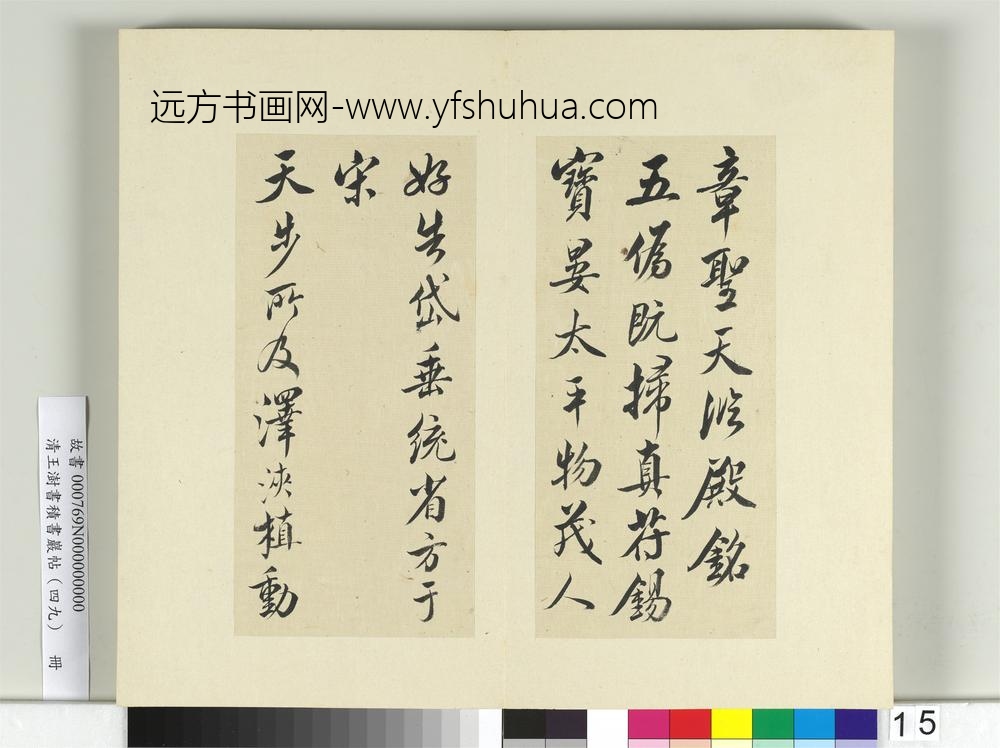 远方书画网-www.yfshuhua.com
章聖天临殿銘
五偽既掃真符錫
寶晏太平物茂人
好告岱垂統省方于
宋
天步所及澤浹植動
故書 000769N000000000
清王澍書積書巖帖（四九） 冊
15